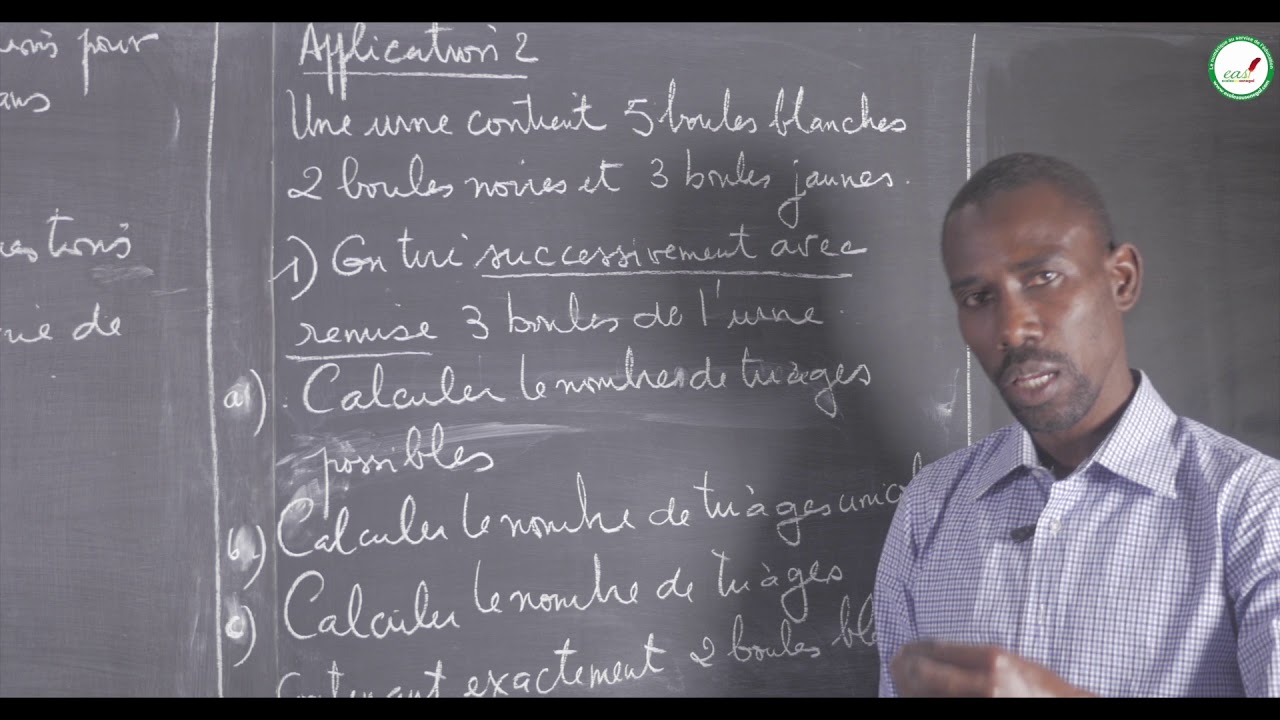 pour
ans
de
Application 2
Une urne contient 5 boules blanches
2 boules noires et 3 boules jaunes.
1) On tire successivement avec
remise 3 boules de l'urne.
a) Calculer le nombre de tirages
possibles
b) Calculer le nombre de tirages
c) Calculer le nombre de tirages
Contenant exactement 2 boules
Le numérique au service de l'éducation
eas
ecoles au senegal
www.ecolesausenegal.com